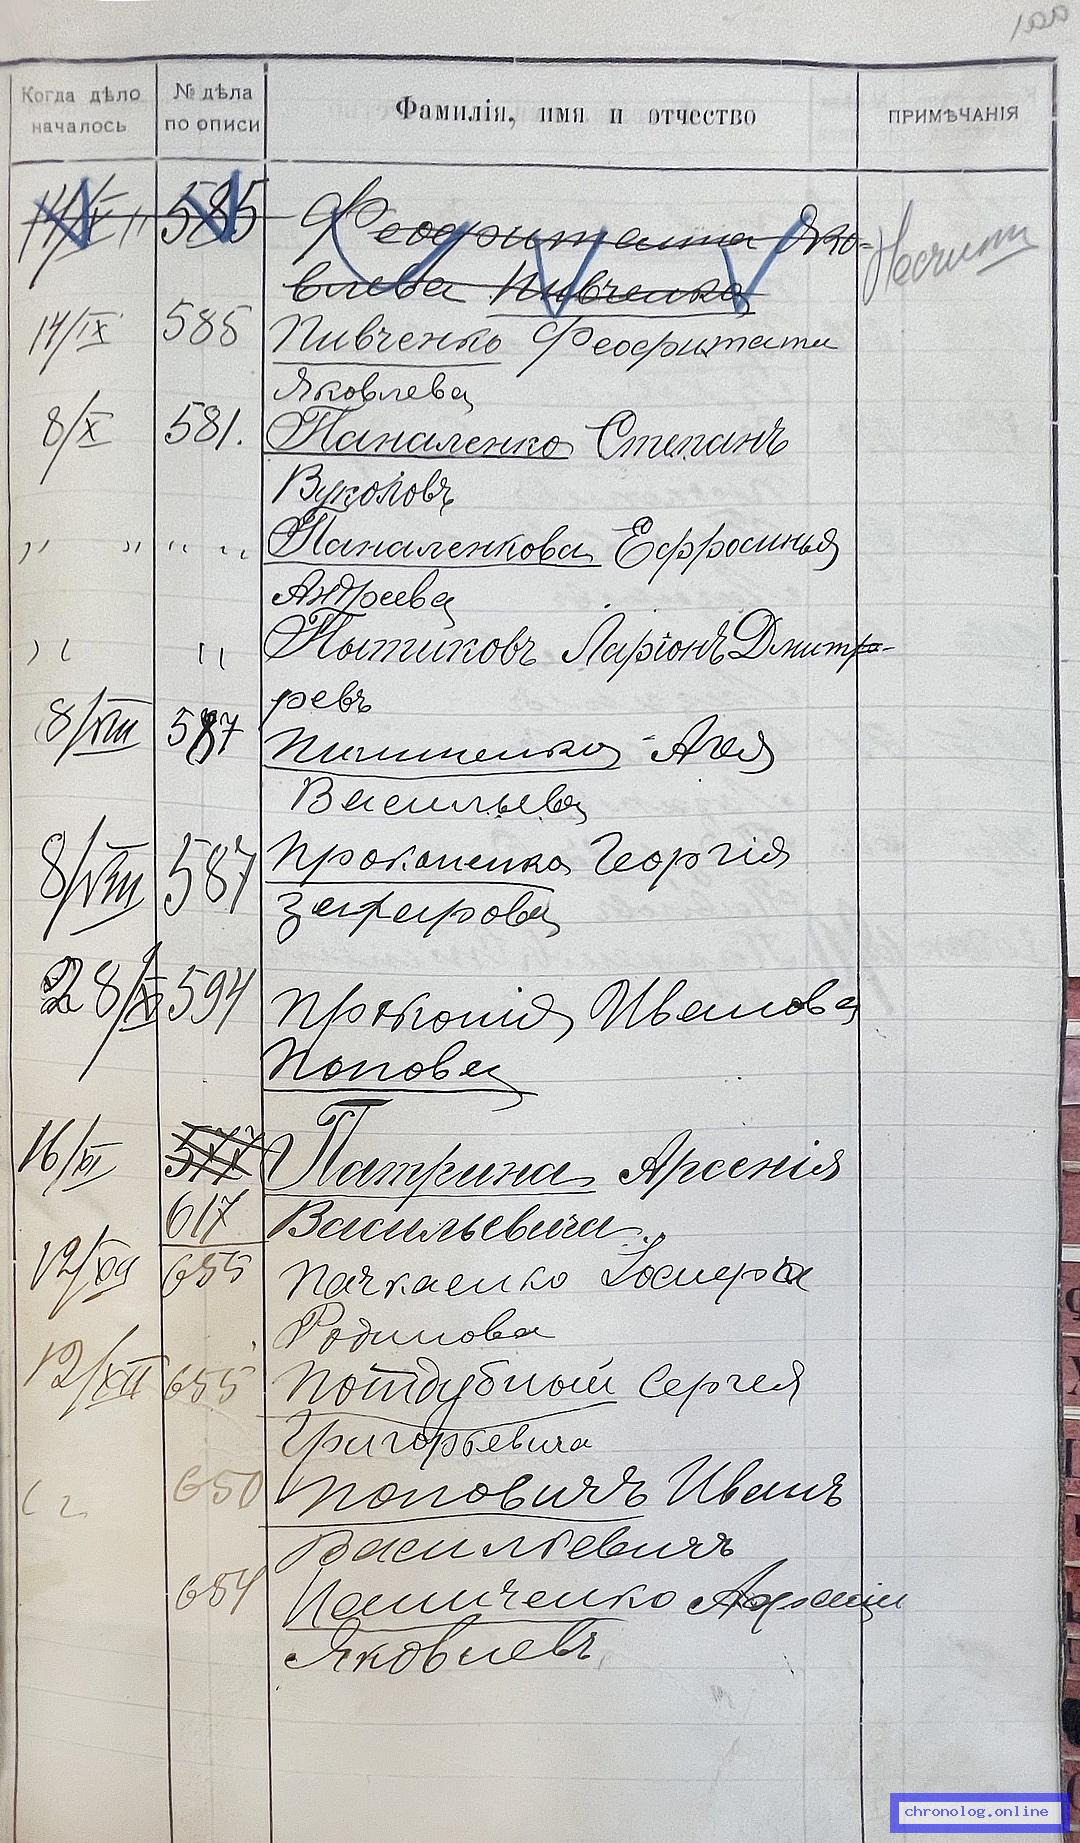 100
Когда дѣло началось
№ дѣла по описи
Фамилія, имя и отчество
ПРИМѢЧАНІЯ
14/IX 585 Феофитакта Яко-
влева Пивченко
14/IX 585 Пивченко Феофитакта
Яковлева
8/X 581. Паналенко Степанъ
Вуколовъ
„ „ „ „ Паналенкова Ефросинья
Андреева
„ „ Пытиковъ Ларіонъ Дмитр-
ревъ
8/VIII 587 Агея
Васильева
8/VIII 587 Прокопенко Георгія
Зефирова
28/ 594 Прокопія Иванова
Попова
16/XI 577 Патрина Арсенія
617 Васильевича
12/XII 655 Іосифа
Родинова
12/XII 655 Потдубный Сергея
Григорьевича
„ 650 Поповичъ Иванъ
Васильевичъ
654 Пашченко
Яковлевъ
chronolog.online